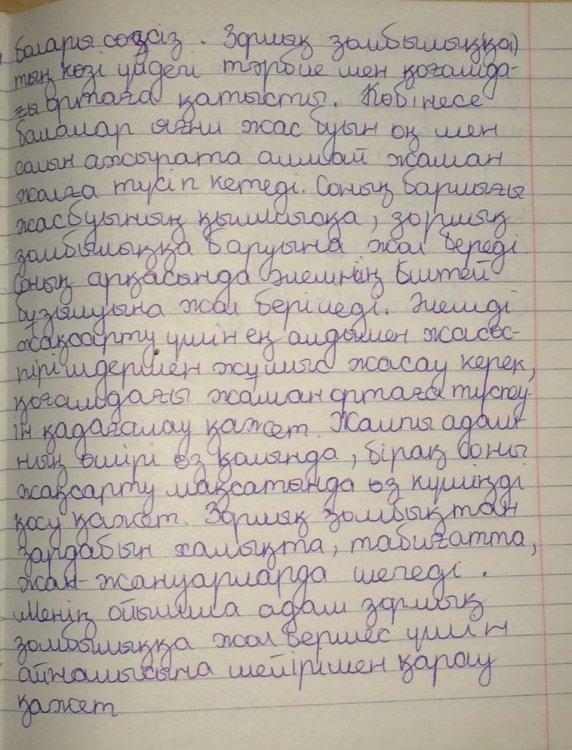 балары сөзсіз. Зорлық зомбылыққа)
тың көзі үйдегі тәрбие мен қоғамда-
ғы ортаға қатысты. Көбінесе
балалар яғни жас буын оң мен
солын ажырата алмай жаман
жолға түсіп кетеді. Соның барлығы
жасбуының қылмысқа, зорлық
зомбылыққа баруына жол береді.
Оның арқасында әлемнің іштей
бұзылуына жол беріледі. Әлемді
жақсарту үшін ең алдымен жасөс-
пірімдермен жұмыс жасау керек,
қоғамдағы жаман ортаға түспеу-
ін қадағалау қажет. Жалпы адам-
ның өмірі өз қолында, бірақ соны
жақсарту мақсатында өз күшіңді
қосу қажет. Зорлық зомбықтан
зардабын халықта, табиғатта,
жан-жануарларда шегеді.
Менің ойымша адам зорлық
зомбылыққа жол бермес үшін
айналысына мейірімен қарау
қажет